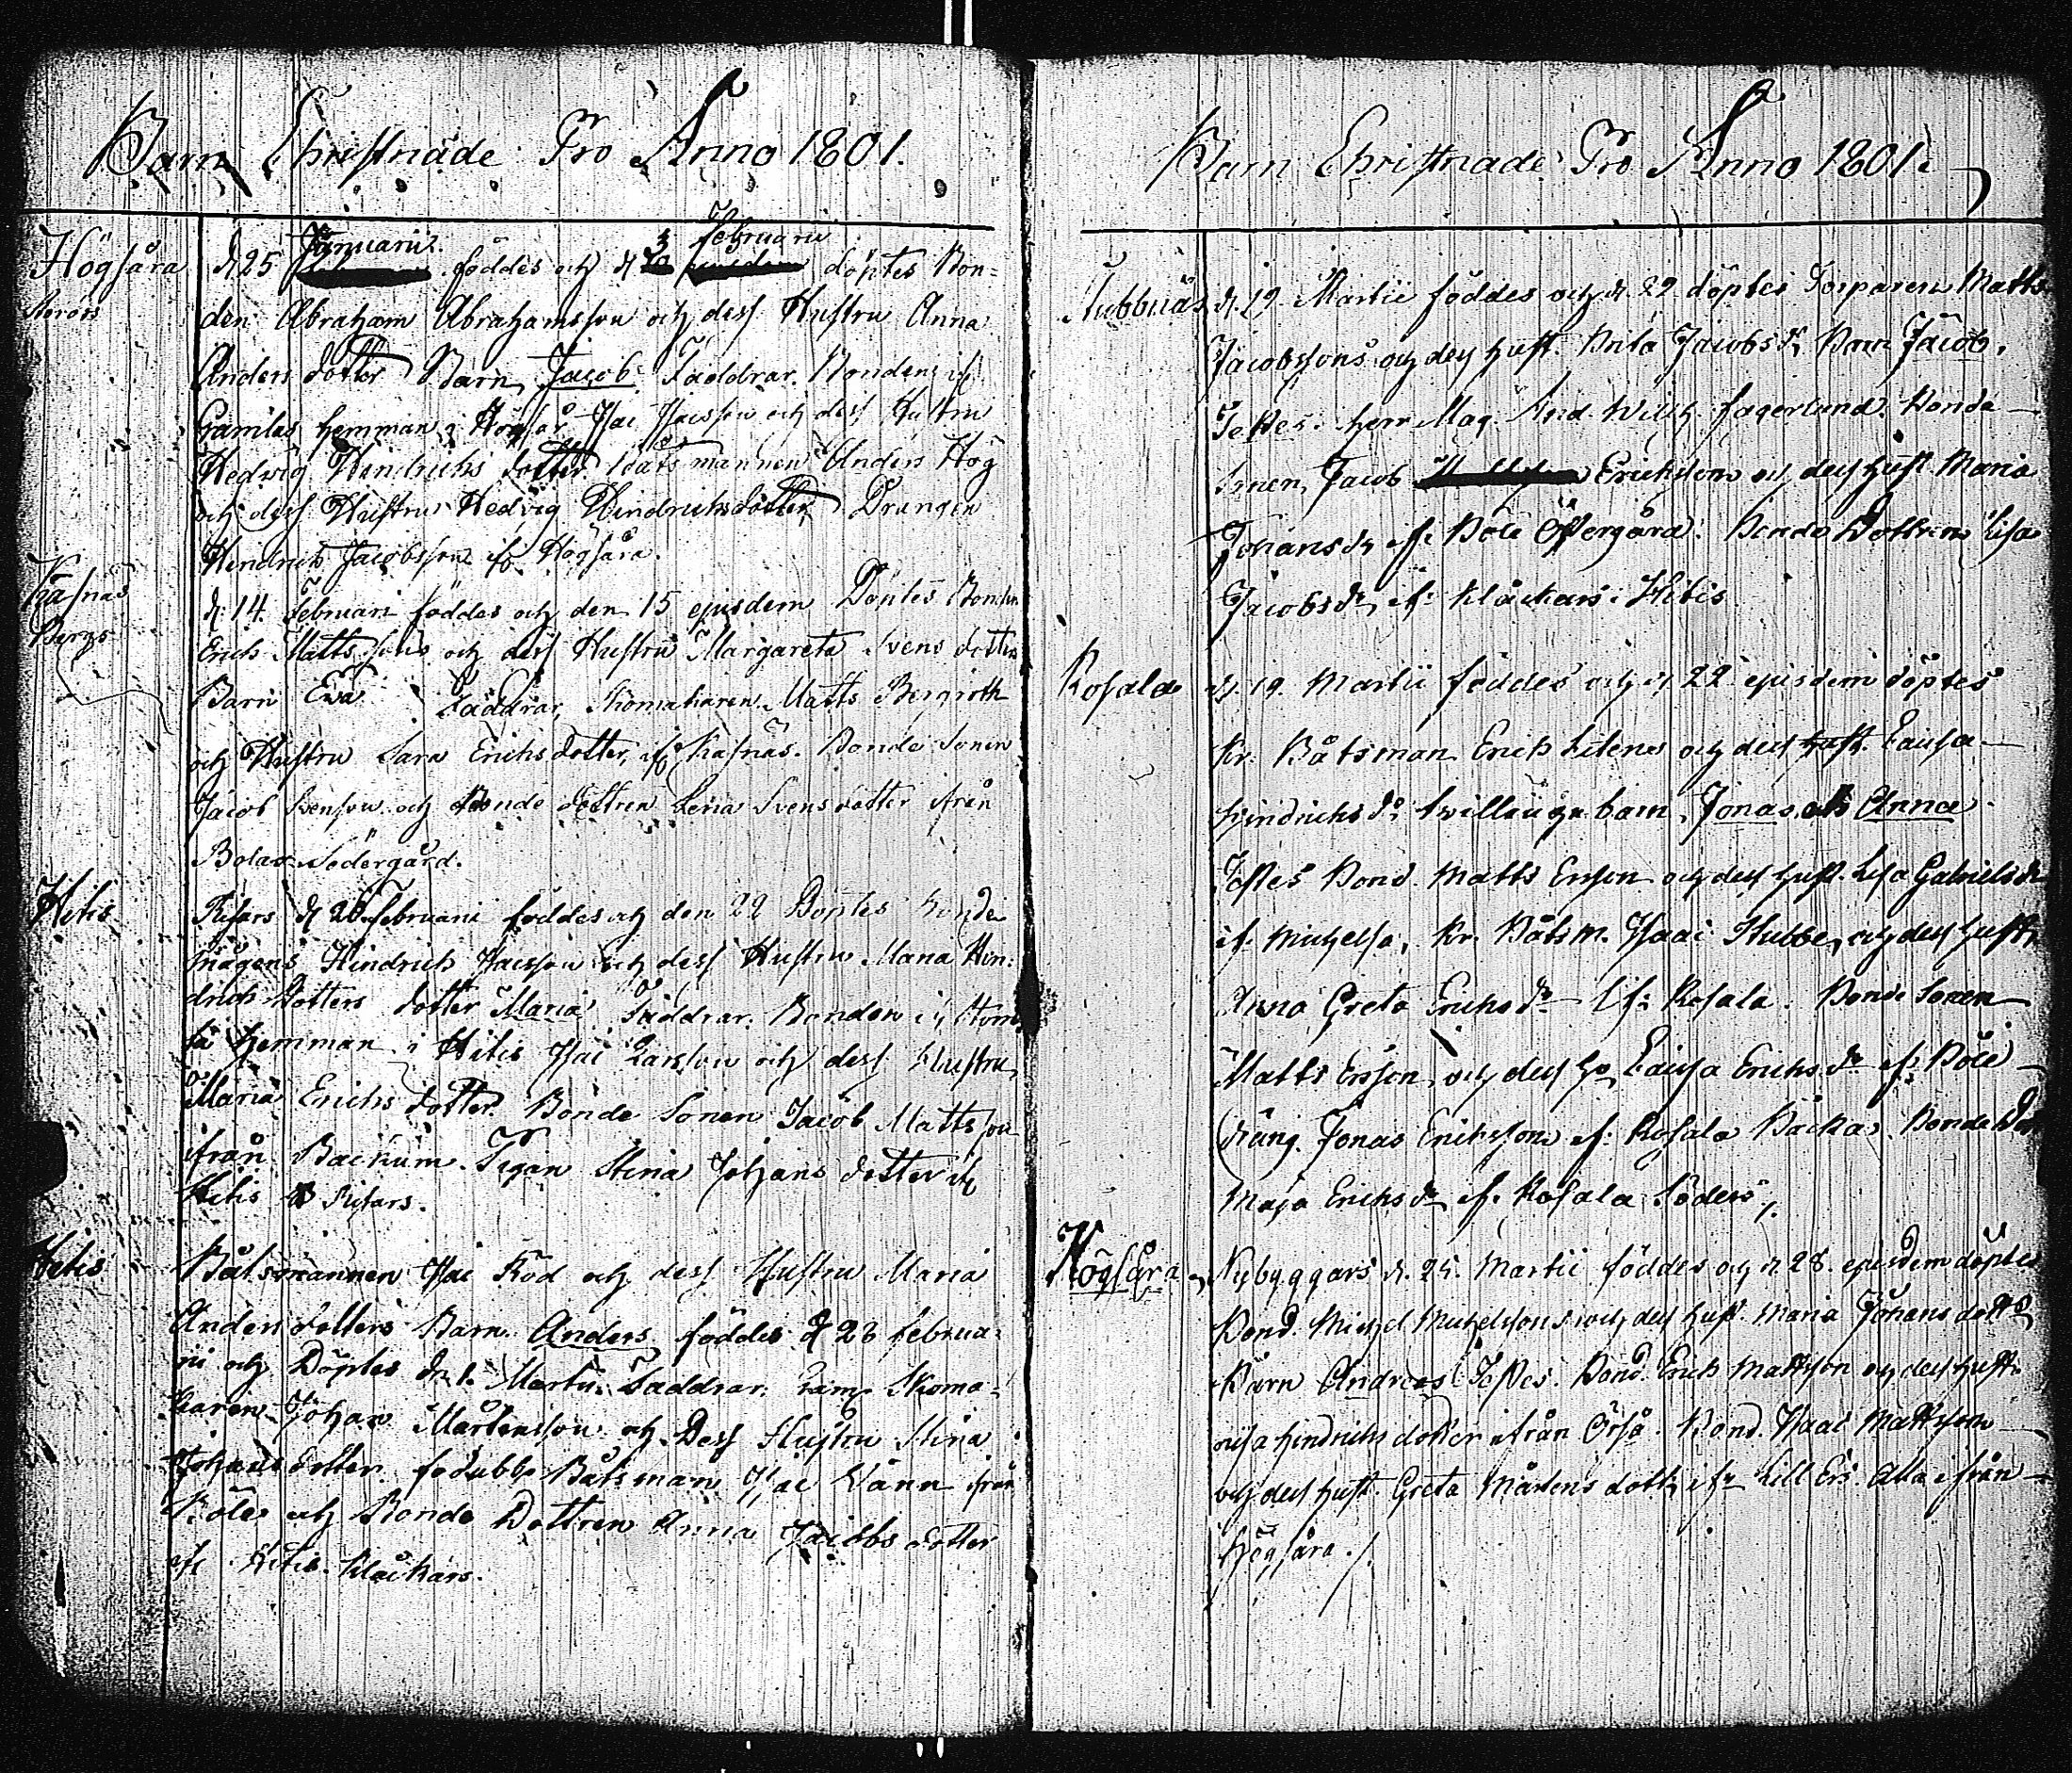 Barn Christnade Pro Anno 1801.
Högsåra
Storörs
d. 25 Januarii föddes och d. 3 Februarii döptes Bon=
den Abraham Abrahamsson och dess Hustru Anna
Anders dotter Barn Jacob. Faddrar. Bonden if.
Gamlas hemman i Högsår Isac Isacsson och dess Hustru
Hedvig Hindrichs dotter. Båtsmannen Anders Hög
och dess Hustru Hedvig Hindrichsdotter Drängen
Hindrich Jacobsson if. Högsåra.
Kasnäs
Bergs
d. 14. Februari föddes och den 15 ejusdem Döptes Bonden
Erich Mattssons och dess Hustru Margareta Svens dotters
Barn Eva Faddrar, Skomakaren Matts Bergroth
och Hustru Sara Erichs dotter, if. Kasnäs. Bonde Sonen
Jacob Svensson och Bonde dottren Lena Svens dotter ifrån
Bolax Södergård.
Hitis
d. 20 Februarii föddes och den 22 Döptes Bonde
mågens Hindrich Isacsson och dess Hustru Maria Hin=
drichs Dotters dotter Maria Faddrar. Bonden i
hemman i Hitis Isac Larsson och dess Hustru
Maria Erichs dotter. Bonde Sonen Jacob Mattsson
ifrån Backum. Pigan Stina Johans dotter if.
Hitis
Hitis
Båtsmannen Isac Röd och dess Hustru Maria
Anders dotters Barn Anders föddes d. 28 Februa=
rii och Döptes d. 1. Martii. Faddrar. Skoma=
karen Johan Mårtensson och Dess Hustru Stina
Johans dotter. Båtsman Isac Vänn ifrån
Böle och Bonde Dottren Anna Jacobs dotter
if. Hitis. Klåckars.
Barn Christnade Pro Anno 1801.
Stubbnäs
d. 19. Martii föddes och d. 22 döptes Torparen Matts
Jacobssons och dess hust. Brita Jacobs dr Barn Jacob.
Testes. herr Mag. And. Wilh. Fagerlund. Bonde
Sonen Jacob Ericksson och dess hust Maria
Johans dr if. Böle Öfvergåra. Bonde Dottren Lisa
Jacobs dr if. Klåckars i Hitis
Rosala
d. 19. Martii föddes och d. 22 ejusdem döptes
Kr. Båtsman Erich och dess hust. Caisa
Hindrichs dr twillinga barn, Jonas och Anna
Testes Bond. Matts Ersson och dess hust. Lisa Gabriels dr
if. Michelsa, Kr. Båtsm. Isaac Stubbe, och dess hustr
Anna Greta Erichs dr if. Rosala. Bonde Sonen
Matts Ersson, och dess h. Caisa Erichs dr if. Böle
dräng. Jonas Ericksson if. Rosala Backa. Bonde Dott
Maja Erichs dr if. Rosala Söders,
Högsåra
Nybyggars d. 25. Martii föddes och d. 28. ejusdem döptes
Bond. Michel Michelssons och dess hust. Maria Johans dotters
Barn Andreas Testes. Bond. Erich Mattsson och dess hustr.
Hindrichs dotter ifrån Örså. Bond. Isaac Mattsson
och dess hust. Greta Mårtens dott. if. Lill Ers. Alla ifrån
högsåra.